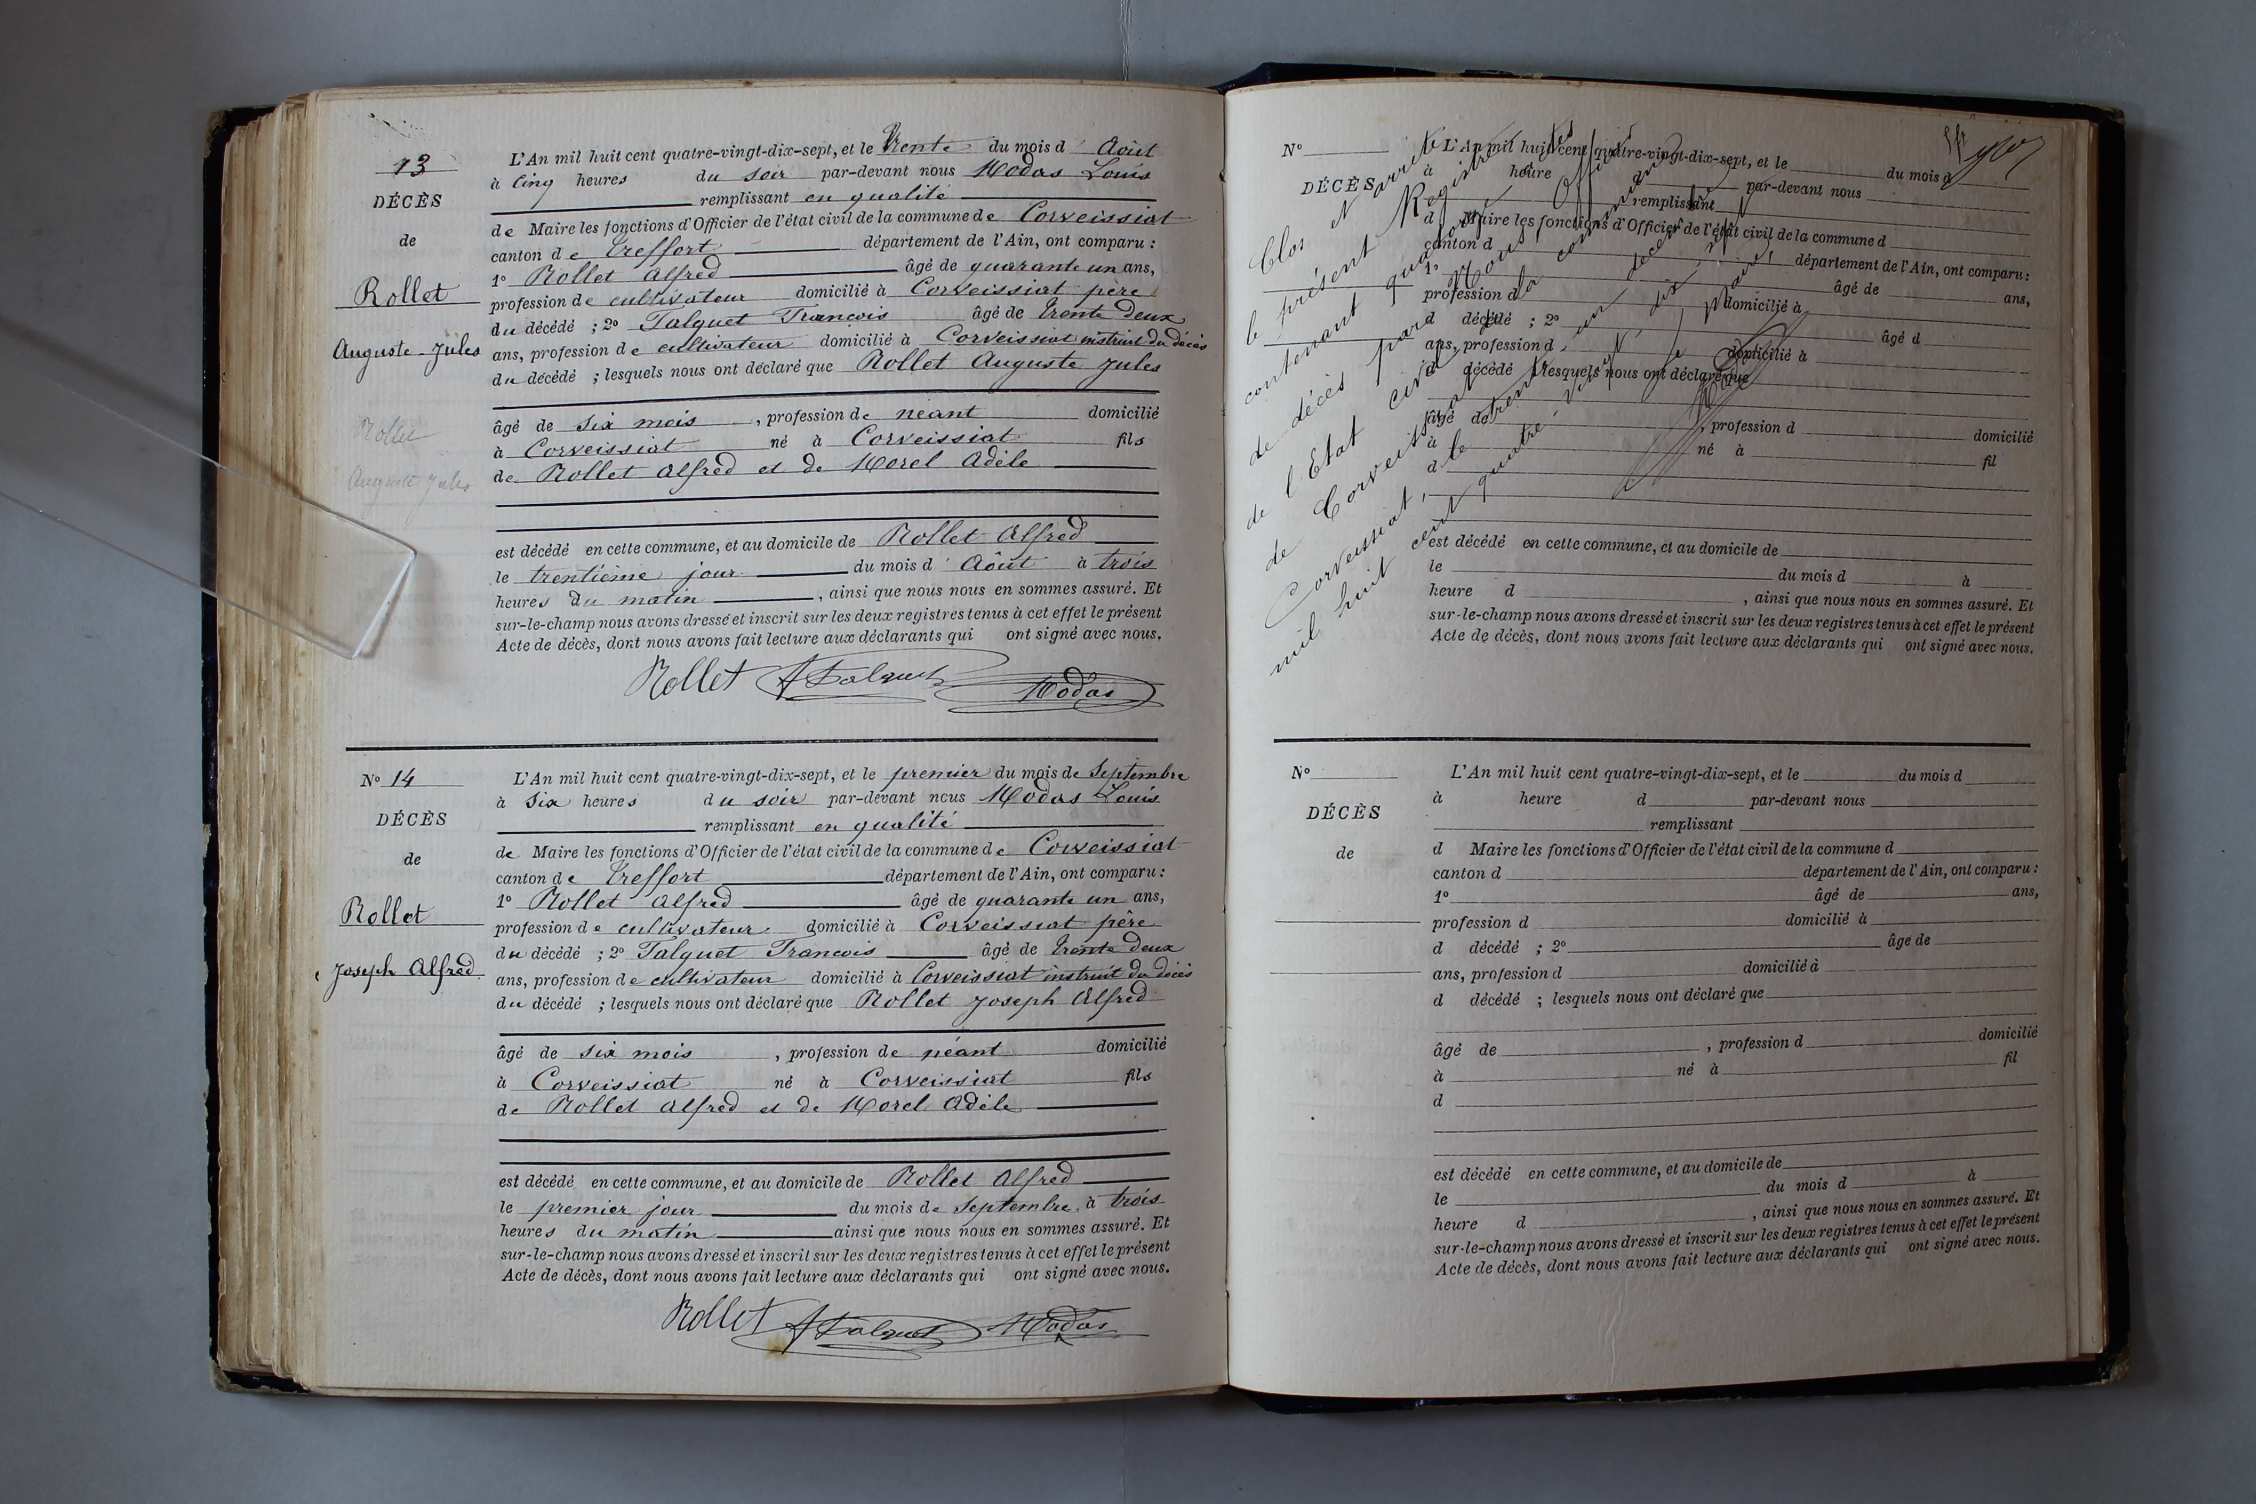 13
DÉCÈS
de
Rollet
Auguste Jules
Rollet
Auguste Jules
L'An mil huit cent quatre-vingt-dix-sept, et le trente du mois d'Août
à cinq heures du soir par-devant nous Modas Louis
remplissant en qualité
de Maire les fonctions d'Officier de l'état civil de la commune de Corveissiat
canton de Treffort département de l'Ain, ont comparu :
1º Rollet Alfred âgé de quarante un ans,
profession de cultivateur domicilié à Corveissiat père
du décédé ; 2º Talquet François âgé de trente deux
ans, profession de cultivateur domicilié à Corveissiat instruit du décès
du décédé ; lesquels nous ont déclaré que Rollet Auguste Jules
âgé de six mois, profession de néant domicilié
à Corveissiat né à Corveissiat fils
de Rollet Alfred et de Morel Adèle
est décédé en cette commune, et au domicile de Rollet Alfred
le trentième jour du mois d'Août à trois
heures du matin, ainsi que nous nous en sommes assuré. Et
sur-le-champ nous avons dressé et inscrit sur les deux registres tenus à cet effet le présent
Acte de décès, dont nous avons fait lecture aux déclarants qui ont signé avec nous.
Rollet Talquet Modas
Nº 14
DÉCÈS
de
Rollet
Joseph Alfred
L'An mil huit cent quatre-vingt-dix-sept, et le premier du mois de Septembre
à six heures du soir par-devant nous Modas Louis
remplissant en qualité
de Maire les fonctions d'Officier de l'état civil de la commune de Corveissiat
canton de Treffort département de l'Ain, ont comparu :
1º Rollet Alfred âgé de quarante un ans,
profession de cultivateur domicilié à Corveissiat père
du décédé ; 2º Talquet François âgé de trente deux
ans, profession de cultivateur domicilié à Corveissiat instruit du décès
du décédé ; lesquels nous ont déclaré que Rollet Joseph Alfred
âgé de six mois, profession de néant domicilié
à Corveissiat né à Corveissiat fils
de Rollet Alfred et de Morel Adèle
est décédé en cette commune, et au domicile de Rollet Alfred
le premier jour du mois de Septembre à trois
heures du matin ainsi que nous nous en sommes assuré. Et
sur-le-champ nous avons dressé et inscrit sur les deux registres tenus à cet effet le présent
Acte de décès, dont nous avons fait lecture aux déclarants qui ont signé avec nous.
Rollet Talquet Modas
Clos et arrêté
le présent Registre
contenant quatorze actes
de décès par Nous, Officier
de l'Etat civil de la commune
de Corveissiat
Corveissiat, le trente un décembre
mil huit cent quatre vingt dix sept
Le Maire,
Modas
Nº
DÉCÈS
L'An mil huit cent quatre-vingt-dix-sept, et le du mois d
à heure d par-devant nous
remplissant
d Maire les fonctions d'Officier de l'état civil de la commune d
canton d département de l'Ain, ont comparu :
1º âgé de ans,
profession d domicilié à
d décédé ; 2º âgé d
ans, profession d domicilié à
d décédé ; lesquels nous ont déclaré que
âgé de, profession d domicilié
à né à fil
d
est décédé en cette commune, et au domicile de
le du mois d à
heure d, ainsi que nous nous en sommes assuré. Et
sur-le-champ nous avons dressé et inscrit sur les deux registres tenus à cet effet le présent
Acte de décès, dont nous avons fait lecture aux déclarants qui ont signé avec nous.
Nº
DÉCÈS
de
L'An mil huit cent quatre-vingt-dix-sept, et le du mois d
à heure d par-devant nous
remplissant
d Maire les fonctions d'Officier de l'état civil de la commune d
canton d département de l'Ain, ont comparu :
1º âgé de ans,
profession d domicilié à
d décédé ; 2º âgé de
ans, profession d domicilié à
d décédé ; lesquels nous ont déclaré que
âgé de, profession d domicilié
à né à fil
d
est décédé en cette commune, et au domicile de
le du mois d à
heure d, ainsi que nous nous en sommes assuré. Et
sur-le-champ nous avons dressé et inscrit sur les deux registres tenus à cet effet le présent
Acte de décès, dont nous avons fait lecture aux déclarants qui ont signé avec nous.